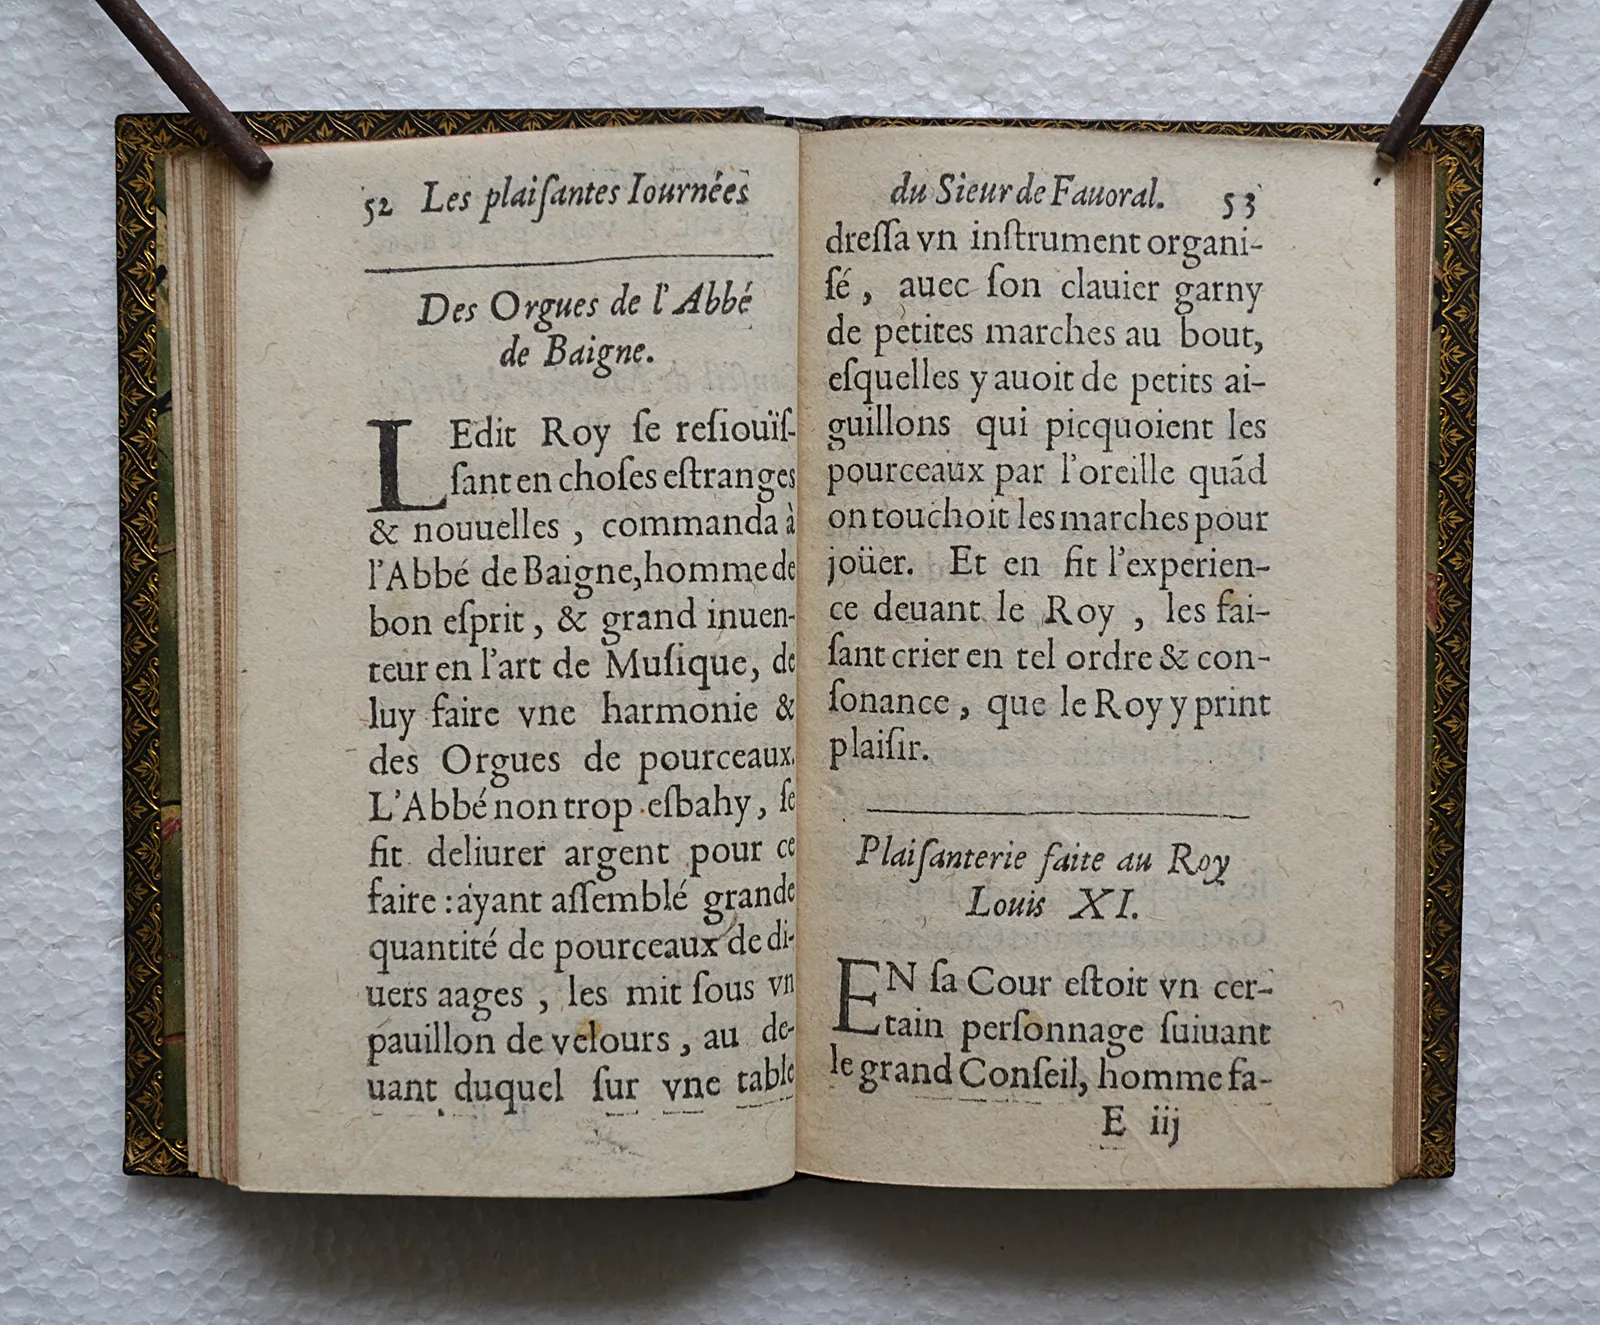 52 Les plaiſantes Iournées
Des Orgues de l'Abbé
de Baigne.
LEdit Roy ſe reſiouïſ-
ſant en choſes eſtranges
& nouuelles , commanda à
l'Abbé de Baigne, homme de
bon eſprit , & grand inuen-
teur en l'art de Muſique, de
luy faire vne harmonie &
des Orgues de pourceaux.
L'Abbé non trop esbahy, ſe
fit deliurer argent pour ce
faire : ayant aſſemblé grande
quantité de pourceaux de di-
uers aages , les mit ſous vn
pauillon de velours , au de-
uant duquel ſur vne table
du Sieur de Fauoral. 53
dreſſa vn inſtrument organi-
ſé , auec ſon clauier garny
de petites marches au bout,
eſquelles y auoit de petits ai-
guillons qui picquoient les
pourceaux par l'oreille quãd
on touchoit les marches pour
joüer. Et en fit l'experien-
ce deuant le Roy , les fai-
ſant crier en tel ordre & con-
ſonance , que le Roy y print
plaiſir.
Plaiſanterie faite au Roy
Louis XI.
EN ſa Cour eſtoit vn cer-
tain perſonnage ſuiuant
le grand Conſeil, homme fa-
E iij